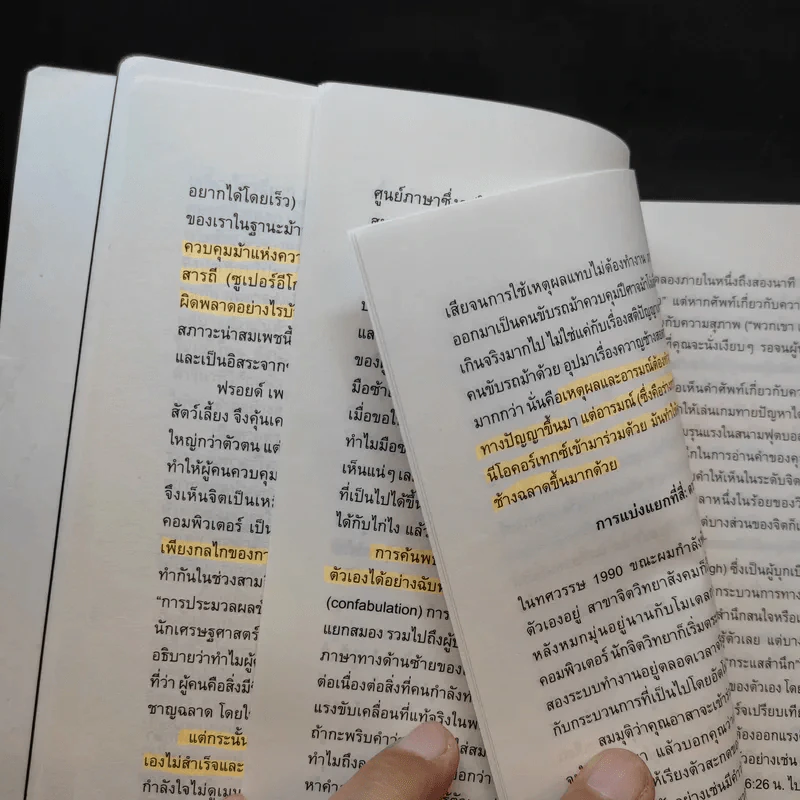 อยากได้โดยเร็ว)
ของเราในฐานะม้า
ควบคุมม้าแห่งควา
สารถี (ซูเปอร์อีโก
ผิดพลาดอย่างไรบ้
สภาวะน่าสมเพชนี้
และเป็นอิสระจาก
ฟรอยด์ เพ
สัตว์เลี้ยง จึงคุ้นเค
ใหญ่กว่าตัวตน แต่
ทำให้ผู้คนควบคุม
จึงเห็นจิตเป็นเหมื
คอมพิวเตอร์ เป็น
เพียงกลไกของกา
ทำกันในช่วงสาม
“การประมวลผลข้
นักเศรษฐศาสตร์
อธิบายว่าทำไมผู้
ที่ว่า ผู้คนคือสิ่งมี
ชาญฉลาด โดยใ
แต่กระนั้น
เองไม่สำเร็จและ
กำลังใจไม่ดูเมน
ศูนย์ภาษาซึ่ง
และ
ของผู้
มือซ้า
เมื่อขอใ
ทำไมมือซ
เห็นแน่ๆ เล
ที่เป็นไปได้ขึ้น
ได้กับไก่ไง แล้ว
การค้นพบ
ตัวเองได้อย่างฉับพ
(confabulation) การ
แยกสมอง รวมไปถึงผู้ป
ภาษาทางด้านซ้ายของส
ต่อเนื่องต่อสิ่งที่คนกำลังทำ
แรงขับเคลื่อนที่แท้จริงในพ
ถ้ากะพริบคำว่า
ทำไมถึง
หาคำ
เสียจนการใช้เหตุผลแทบไม่ต้องทำงาน
ออกมาเป็นคนขับรถม้าควบคุมปีศาจม้า
เกินจริงมากไป ไม่ใช่แค่กับเรื่องสติปัญญา
คนขับรถม้าด้วย อุปมาเรื่องควาญช้าง
มากกว่า นั่นคือเหตุผลและอารมณ์ต้อง
ทางปัญญาขึ้นมา แต่อารมณ์ (ซึ่งคือร่าง
นีโอคอร์เทกซ์เข้ามาร่วมด้วย มันทำใ
ช้างฉลาดขึ้นมากด้วย
การแบ่งแยกที่สี่:
ในทศวรรษ 1990 ขณะผมกำลัง
ตัวเองอยู่ สาขาจิตวิทยาสังคมก็
หลังหมกมุ่นอยู่นานกับโมเดล
คอมพิวเตอร์ นักจิตวิทยาก็เริ่มตระ
สองระบบทำงานอยู่ตลอดเวลา
กับกระบวนการที่เป็นไปโดยอัต
สมมุติว่าคุณอาสาจะเข้า
มา แล้วบอกคุณว่
ให้เรียงตัวสะกด
อย่างเช่นมีคำ
ลองภายในหนึ่งถึงสองนาที
แต่หากศัพท์เกี่ยวกับควา
กับความสุภาพ (“พวกเขา
ที่คุณจะนั่งเงียบๆ รอจนผู้
อเห็นคำศัพท์เกี่ยวกับควา
ให้เล่นเกมทายปัญหาใ
รุนแรงในสนามฟุตบอล
ในการอ่านคำของคุ
ทำให้เห็นในระดับจิต
ลาหนึ่งในร้อยของวิ
แต่บางส่วนของจิตก็
gh) ซึ่งเป็นผู้บุกเบิ
กระบวนการทาง
สำนึกสนใจหรือเ
รู้ตัวเลย แต่บาง
กระแสสำนึกา
ของตัวเอง โดย
ร็จเปรียบเทีย
ต้องออกแรง
ตัวอย่างเช่น
6:26 น. ไป